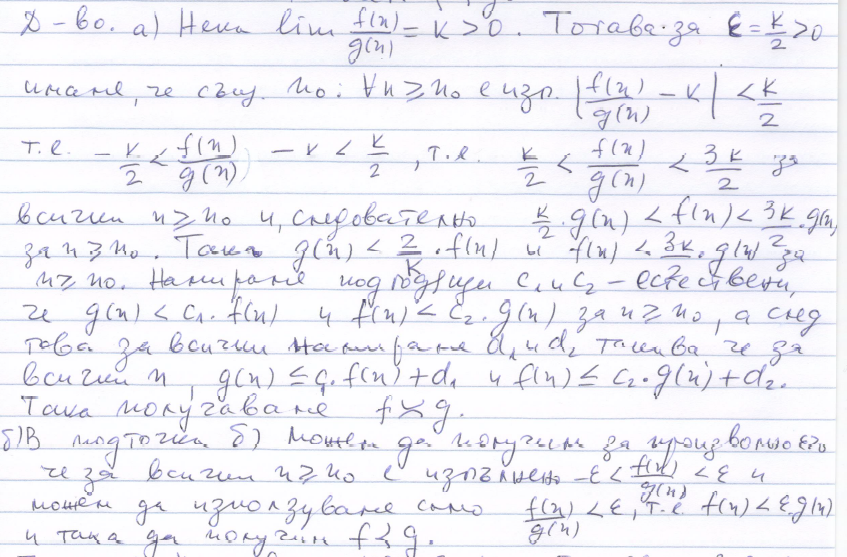 Д-во. а) Нека lim f(n)/g(n) = k > 0. Тогава за ε = k/2 > 0
имаме, че същ. n₀: ∀n ≥ n₀ е изп. |f(n)/g(n) - k| < k/2
т.е. -k/2 < f(n)/g(n) - k < k/2, т.е. k/2 < f(n)/g(n) < 3k/2 за
всички n ≥ n₀ и, следователно k/2·g(n) < f(n) < 3k/2·g(n)
за n ≥ n₀. Така g(n) < 2/k·f(n) и f(n) < 3k/2·g(n) за
n ≥ n₀. Намираме подходящи c₁ и c₂ - естествени,
че g(n) < c₁·f(n) и f(n) < c₂·g(n) за n ≥ n₀, а след
това за всички намираме d₁ и d₂ такива че за
всички n, g(n) ≤ c₁·f(n) + d₁ и f(n) ≤ c₂·g(n) + d₂.
Така получаваме f ≍ g.
б) В подточка б) можем да получим за произволно ε>0
че за всички n ≥ n₀ е изпълнено -ε < f(n)/g(n) < ε и
можем да използваме само f(n)/g(n) < ε, т.е f(n) < ε·g(n)
и така да получим f ≺ g.